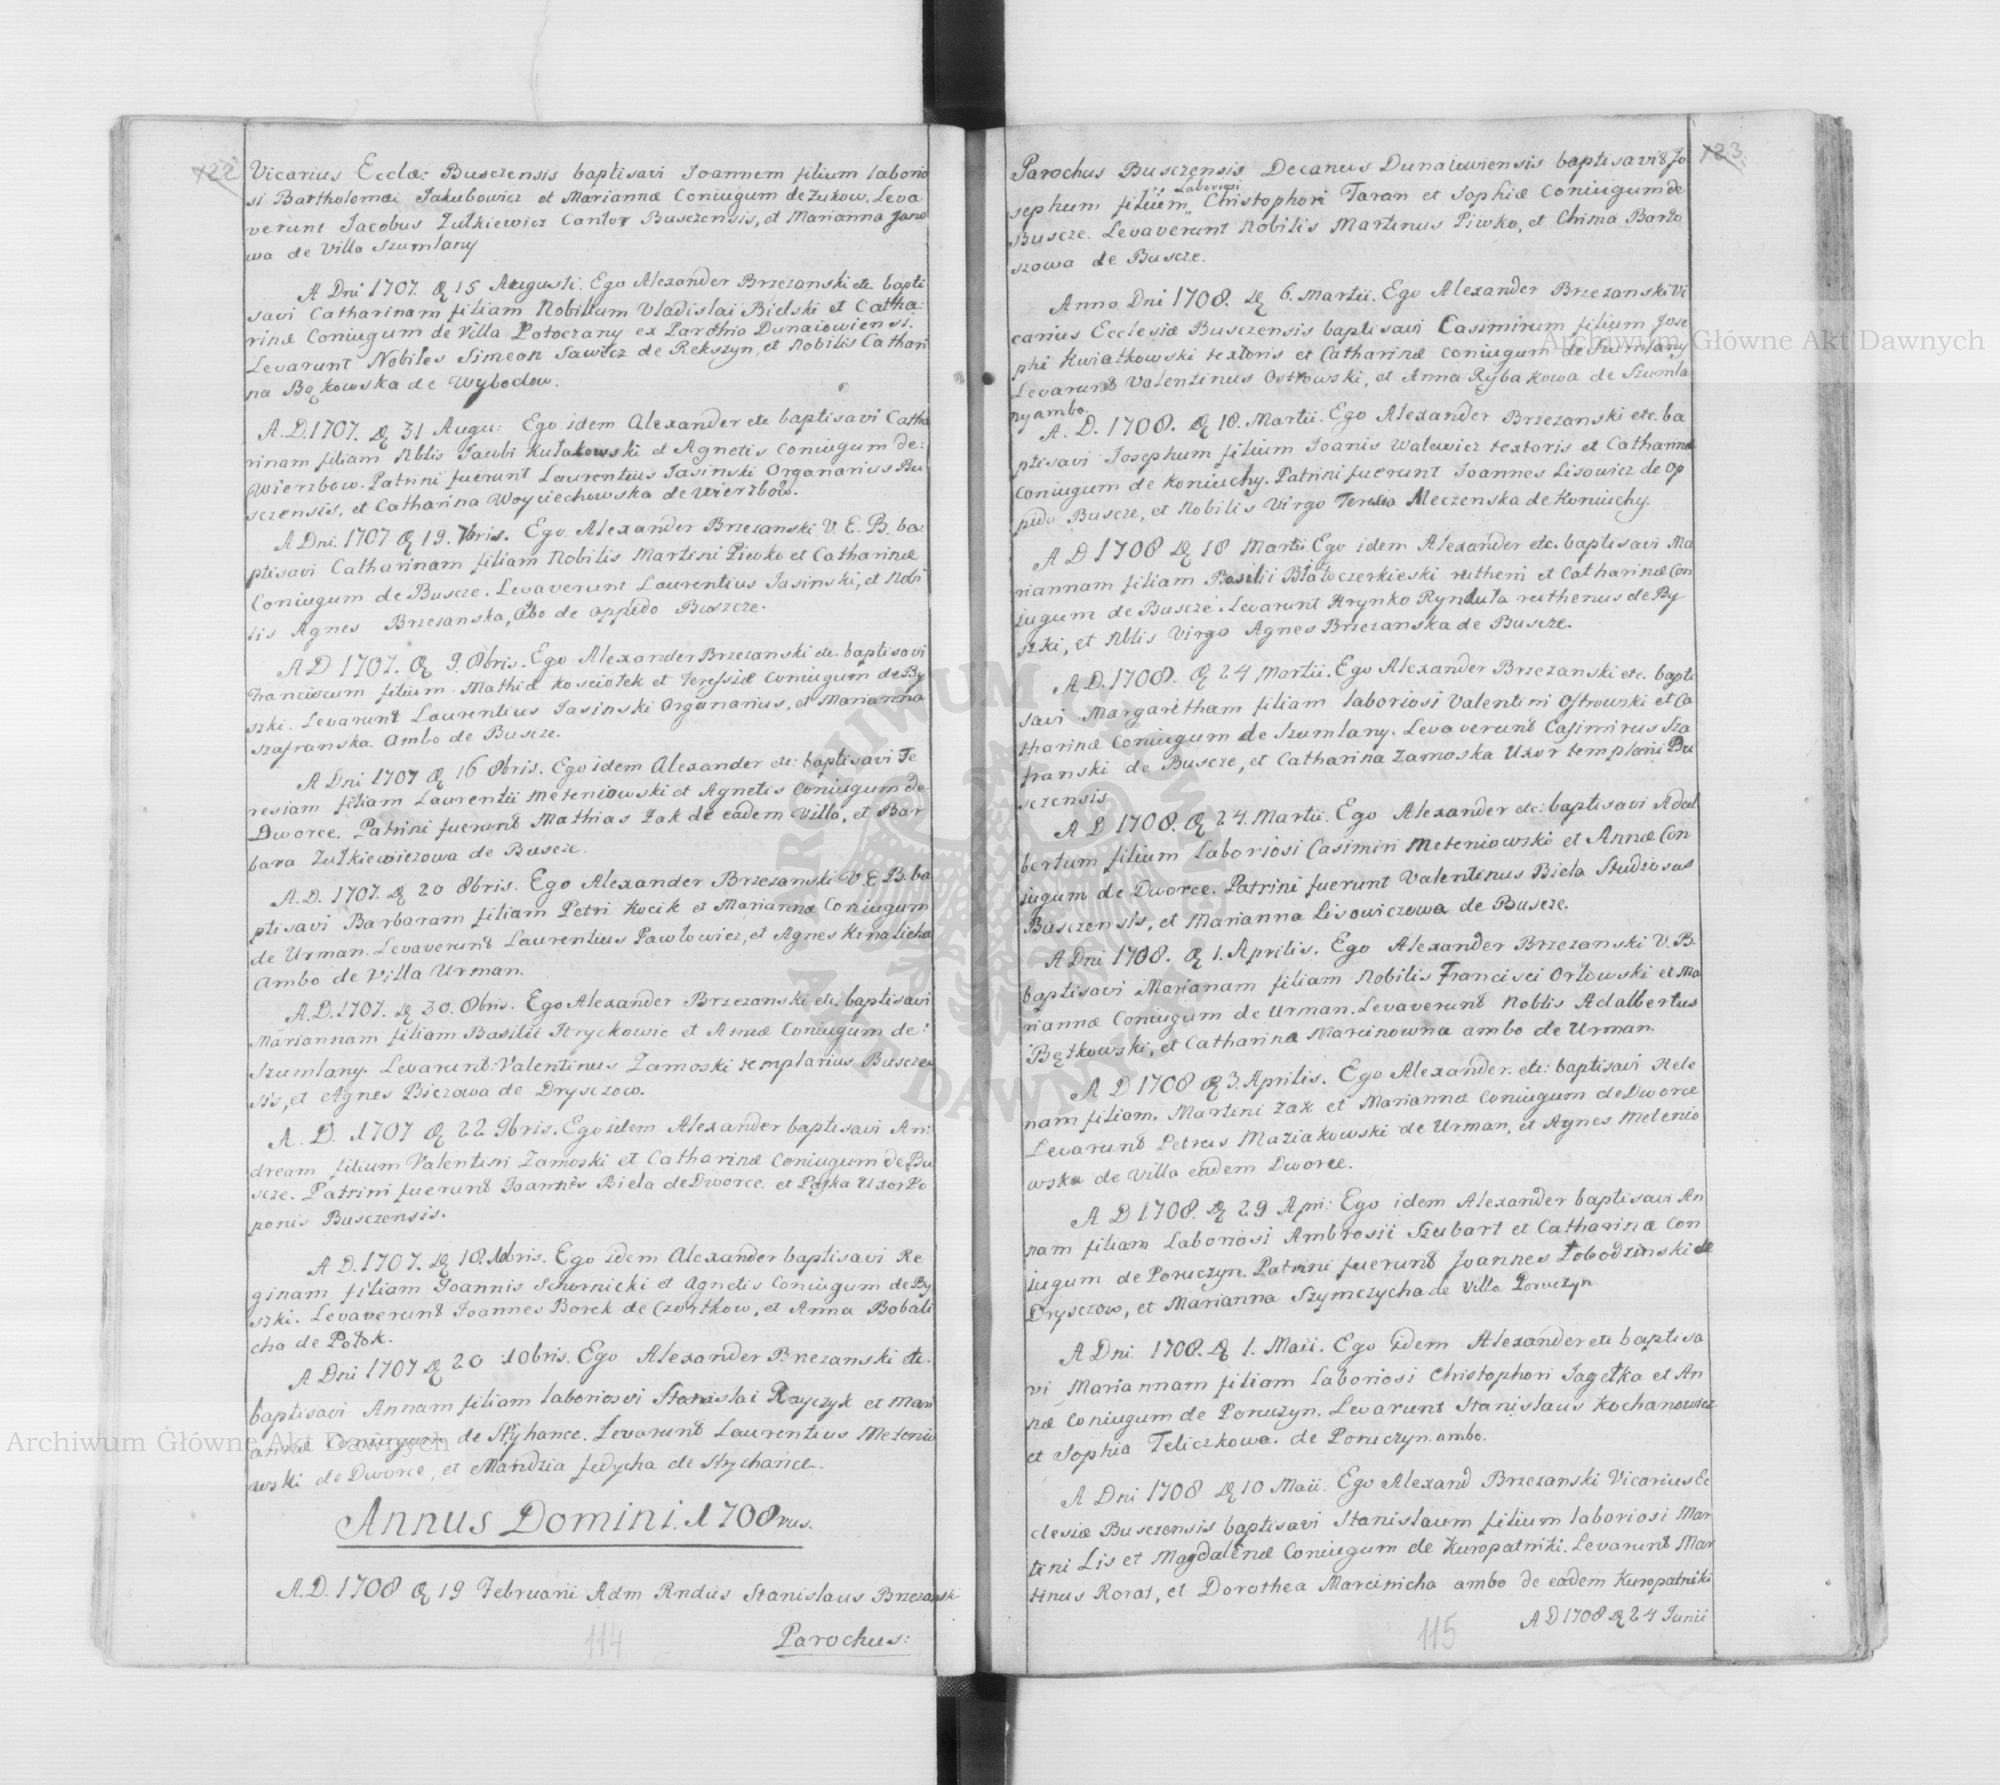 122
Vicarius Ecclæ: Busczensis baptisavi Joannem filium laborio
si Bartholomæi Jakubowicz et Mariannæ Coniugum de Zukow. Leva
verunt Jacobus Zułkiewicz Cantor Busczensis, et Marianna Jano
wa de Villa Szumlany
A Dni 1707. D 15 Augusti. Ego Alexander Brzezanski etc. bapti
savi Catharinam filiam Nobilium Vladislai Bielski et Catha
rinæ Coniugum de Villa Potoczany ex Parohio Dunaiowiensi.
Levarunt Nobiles Simeon Sawicz de Rekszyn, et Nobilis Cathari
na Bąkowska de Wybodow.
A.D. 1707. D 31 Augu: Ego idem Alexander etc baptisavi Catha
rinam filiam Nblis Jacobi Kułakowski et Agnetis Coniugum de:
Wierzbow. Patrini fuerunt Laurentius Jasinski Organarius Bu
sczensis, et Catharina Woyciechowska de Wierzbow.
A Dni. 1707 D 19. 7bris. Ego Alexander Brzezanski V. E. B. ba
ptisavi Catharinam filiam Nobilis Martini Piwko et Catharinæ
Coniugum de Buscze. Levaverunt Laurentius Jasinski, et Nobi
lis Agnes Brzezanska, Abo de oppido Buszcze.
A D 1707. D 9. 8bris. Ego Alexander Brzezanski etc. baptisavi
Franciscum filium Mathiæ Kosciołek et Teressiæ Coniugum de By
szki. Levarunt Laurentius Jasinski Organarius, et Marianna
Szafranska. Ambo de Buscze.
A Dni 1707 D 16 8bris. Ego idem Alexander etc: baptisavi Te
resiam filiam Laurentii Meteniowski et Agnetis Coniugum de
Dworce. Patrini fuerunt Mathias Zak de eadem Villa, et Bar
bara Zułkiewiczowa de Buscze.
A.D. 1707. D 20 8bris. Ego Alexander Brzezanski V. E. B. ba
ptisavi Barbaram filiam Petri Kocik et Mariannæ Coniugum
de Urman. Levaverunt Laurentius Pawłowicz, et Agnes Kinalicha
Ambo de Villa Urman.
A.D. 1707. D 30. 8bris. Ego Alexander Brzezanski etc. baptisavi
Mariannam filiam Basilii Hryckowic et Annæ Coniugum de:
Szumlany. Levarunt: Valentinus Zamoski templarius Busczen
sis, et Agnes Biczowa de Drysczow.
A. D. 1707 D 22 9bris. Ego idem Alexander baptisavi An:
dream filium Valentini Zamoski et Catharinæ Coniugum de Bu
scze. Patrini fuerunt Joannes Biela de Dworce. et Payka Uxor Po
ponis Busczensis.
A D. 1707. D 18. 10bris. Ego idem Alexander baptisavi Re
ginam filiam Joannis Schornicki et Agnetis Coniugum de By
szki. Levaverunt Joannes Borek de Czortkow, et Anna Bobali
cha de Potok.
A Dni 1707 D 20 10bris. Ego Alexander Brzezanski etc.
baptisavi Annam filiam laboriosi Stanislai Rayczyk et Mari
annæ Coniugum de Stryhance. Levarunt Laurentius Metenio
wski de Dworce, et Mandzia fedycha de Strychance.
Annus Domini. 1708vus.
A.D. 1708 D 19 Februarii Adm Rndus Stanislaus Brzezanski
Parochus:
114
123.
Parochus Busczensis Decanus Dunaiewiensis baptisavit Jo
sephum filium Laboriosi Christophori Taran et Sophiæ Coniugum de
Buscze. Levaverunt Nobilis Martinus Piwko, et Chima Barto
szowa de Buscze.
Anno Dni 1708. D 6. Martii. Ego Alexander Brzezanski Vi
carius Ecclesiæ Busczensis baptisavi Casimirum filium Jose
phi Kwiatkowski textoris et Catharinæ Coniugum de Szumlany
Levarunt Valentinus Ostrowski, et Anna Rybakowa de Szumla
ny ambo.
A. D. 1708. D 18. Martii. Ego Alexander Brzezanski etc. ba
ptisavi Josephum filium Joanis Walewicz textoris et Catharinæ
Coniugum de Koniuchy. Patrini fuerunt Joannes Lisowicz de Op
pido Buscze, et Nobilis Virgo Teresia Meczenska de Koniuchy.
A D 1708 D 18 Martii Ego idem Alexander etc. baptisavi Ma
riannam filiam Basilii Białoczerkieski rutheni et Catharinæ Con
iugum de Buscze. Levarunt Hrynko Rynduła ruthenus de By
szki, et Nblis Virgo Agnes Brzezanska de Buscze.
A.D. 1708. D 24 Martii. Ego Alexander Brzezanski etc. bapti
savi Margaritham filiam laboriosi Valentini Ostrowski et Ca
tharinæ Coniugum de Szumlany. Levaverunt Casimirus Sza
franski de Buscze, et Catharina Zamoska Uxor templarii Bu
sczensis
A D 1708. D 24. Martii. Ego Alexander etc: baptisavi Adal
bertum filium Laboriosi Casimiri Meteniowski et Annæ Con
iugum de Dworce. Patrini fuerunt Valentinus Biela Studiosus
Busczensis, et Marianna Lisowiczowa de Buscze.
A Dni 1708. D 1. Aprilis. Ego Alexander Brzezanski V. B.
baptisavi Marianam filiam Nobilis Francisci Orłowski et Ma
riannæ Coniugum de Urman. Levaverunt Noblis Adalbertus
Bętkowski, et Catharina Marcinowna ambo de Urman.
A D 1708 D 3. Aprilis. Ego Alexander. etc: baptisavi Hele
nam filiam. Martini Zak et Mariannæ Coniugum de Dworce
Levarunt Petrus Maziakowski de Urman, et Agnes Metenio
wska de Villa eadem Dworce.
A D 1708. D 29 Apri: Ego idem Alexander baptisavi An
nam filiam Laboriosi Ambrosii Szubart et Catharinæ Con
iugum de Poruczyn. Patrini fuerunt Joannes Łobodzinski de
Drysczow, et Marianna Szymczycha de Villa Poruczyn
A Dni 1708. D 1. Maii. Ego idem Alexander etc baptisa
vi Mariannam filiam Laboriosi Christophori Jagełka et An
næ Coniugum de Poruczyn. Levarunt Stanislaus Kochanowicz
et Sophia Teliczkowa. de Poruczyn ambo.
A Dni 1708 D 10 Maii. Ego Alexand Brzezanski Vicarius Ec
clesiæ Busczensis baptisavi Stanislaum filium laboriosi Mar
tini Lis et Magdalenæ Coniugum de Kuropatniki. Levarunt Mar
tinus Rorat, et Dorothea Marcinicha ambo de eadem Kuropatniki
A D 1708 D 24 Junii
115
Archiwum Główne Akt Dawnych
Archiwum Główne Akt Dawnych
ARCHIWUM GŁÓWNE AKT DAWNYCH